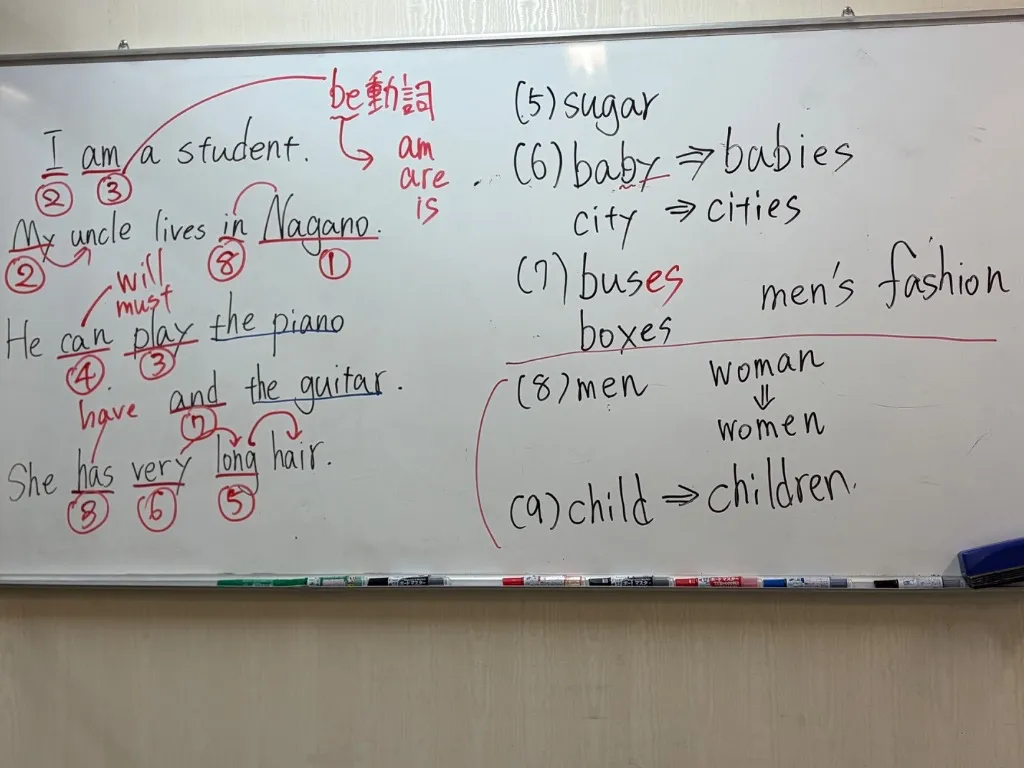 be動詞
am
are
is
I am a student.
② ③
My uncle lives in Nagano.
② ⑧ ①
will
must
He can play the piano
④ ③
and the guitar.
⑦
have
She has very long hair.
⑧ ⑥ ⑤
(5) sugar
(6) baby ⇒ babies
city ⇒ cities
(7) buses
boxes
men's fashion
(8) men
woman
⇓
women
(9) child ⇒ children.